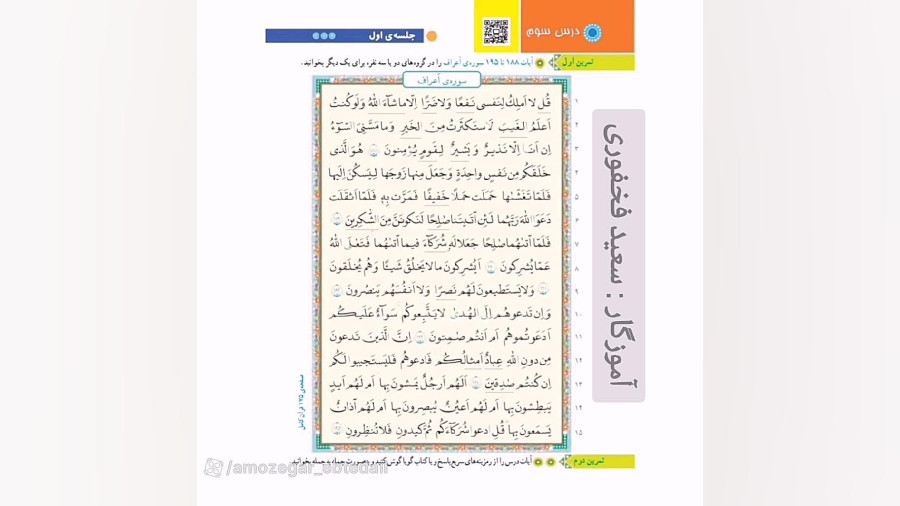 درس سوم
جلسه‌ی اول
تمرین اول
آیات ۱۸۸ تا ۱۹۵ سوره‌ی اَعراف را در گروه‌های دو یا سه نفره برای یک دیگر بخوانید.
سوره‌ی اَعراف
۱ قُل لا اَملِكُ لِنَفسی نَفعًا وَلا ضَرًّا اِلّا ما شاءَ اللّٰهُ وَلَو كُنتُ
۲ اَعلَمُ الغَيبَ لَاستَكثَرتُ مِنَ الخَيرِ وَما مَسَّنِیَ السّوءُ
۳ اِن اَنَا اِلّا نَذيرٌ وَبَشيرٌ لِقَومٍ يُؤمِنونَ هُوَ الَّذی
۴ خَلَقَكُم مِن نَفسٍ واحِدَةٍ وَجَعَلَ مِنها زَوجَها لِيَسكُنَ اِلَيها
۵ فَلَمّا تَغَشّٰها حَمَلَت حَملًا خَفيفًا فَمَرَّت بِهٖ فَلَمّا اَثقَلَت
۶ دَعَوَا اللّٰهَ رَبَّهُما لَئِن آتَيتَنا صالِحًا لَنَكونَنَّ مِنَ الشّٰكِرينَ
۷ فَلَمّا آتٰهُما صٰلِحًا جَعَلا لَهٗ شُرَكاءَ فيما آتٰهُما فَتَعٰلَی اللّٰهُ
۸ عَمّا يُشرِكونَ اَيُشرِكونَ ما لا يَخلُقُ شَيئًا وَهُم يُخلَقونَ
۹ وَلا يَستَطيعونَ لَهُم نَصرًا وَلا اَنفُسَهُم يَنصُرونَ
۱۰ وَاِن تَدعوهُم اِلَی الهُدیٰ لا يَتَّبِعوكُم سَواءٌ عَلَيكُم
۱۱ اَدَعَوتُموهُم اَم اَنتُم صٰمِتونَ اِنَّ الَّذينَ تَدعونَ
۱۲ مِن دونِ اللّٰهِ عِبادٌ اَمثالُكُم فَادعوهُم فَليَستَجيبوا لَكُم
۱۳ اِن كُنتُم صٰدِقينَ اَلَهُم اَرجُلٌ يَمشونَ بِها اَم لَهُم اَيدٍ
۱۴ يَبطِشونَ بِها اَم لَهُم اَعيُنٌ يُبصِرونَ بِها اَم لَهُم آذانٌ
۱۵ يَسمَعونَ بِها قُلِ ادعوا شُرَكاءَكُم ثُمَّ كيدونِ فَلا تُنظِرونِ
صفحه‌ی ۱۷۵ قرآن کامل
آموزگار : سعید فخفوری
تمرین دوم
آیات درس را از رمزینه‌های سریع پاسخ و یا کتاب گویا گوش کنید و به صورت جمله به جمله بخوانید
/amozegar_ebtedaii